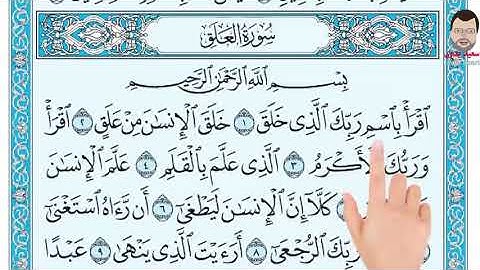 سُورَةُ العَلَقِ
بِسْمِ ٱللَّهِ ٱلرَّحْمَٰنِ ٱلرَّحِيمِ
ٱقْرَأْ بِٱسْمِ رَبِّكَ ٱلَّذِى خَلَقَ ١ خَلَقَ ٱلْإِنسَٰنَ مِنْ عَلَقٍ ٢ ٱقْرَأْ
وَرَبُّكَ ٱلْأَكْرَمُ ٣ ٱلَّذِى عَلَّمَ بِٱلْقَلَمِ ٤ عَلَّمَ ٱلْإِنسَٰنَ
كَلَّآ إِنَّ ٱلْإِنسَٰنَ لَيَطْغَىٰٓ ٦ أَن رَّءَاهُ ٱسْتَغْنَىٰٓ
رَبِّكَ ٱلرُّجْعَىٰٓ ٨ أَرَءَيْتَ ٱلَّذِى يَنْهَىٰ ٩ عَبْدًا